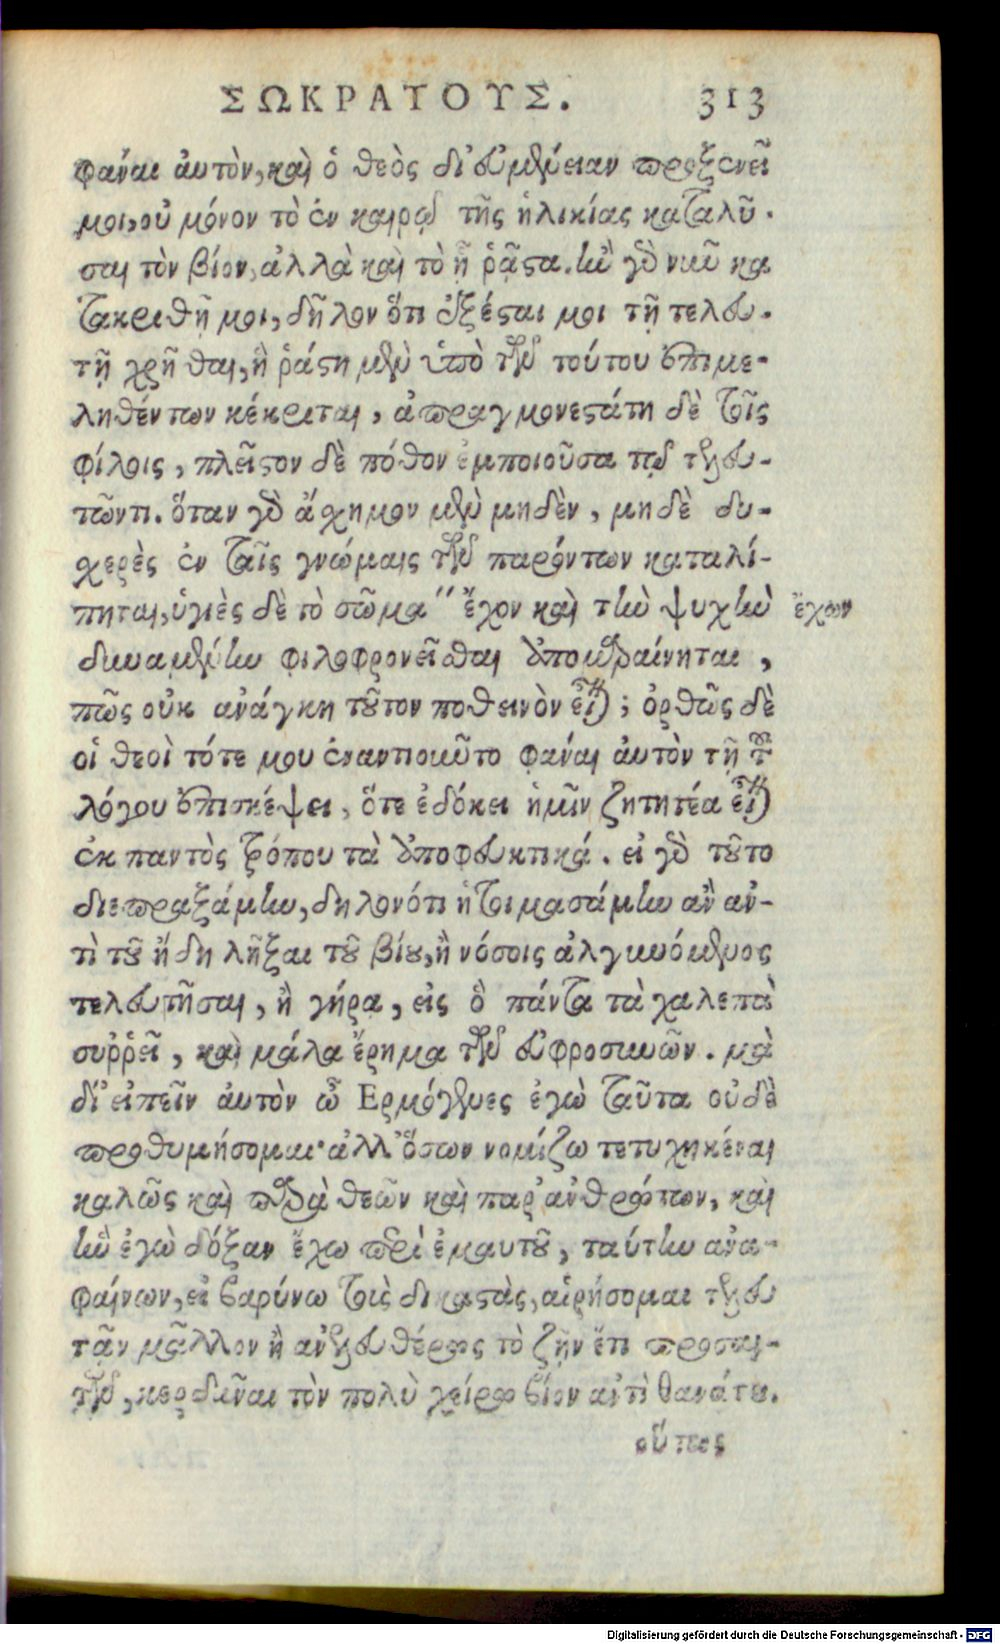 ΣΩΚΡΑΤΟΥΣ. 313
φάναι ἀυτὸν, καὶ ὁ θεὸς δι᾽ ἐυμένειαν προξενεῖ
μοι, οὐ μόνον τὸ ἐν καιρῷ τῆς ἡλικίας καταλῦ-
σαι τὸν βίον, ἀλλὰ καὶ τὸ ᾗ ῥᾷστα. ἢν γὰρ νῦν κα
τακριθῇ μοι, δῆλον ὅτι ἐξέσται μοι τῇ τελευ-
τῇ χρῆσθαι, ἣ ῥάστη μὲν ὑπὸ τῶν τούτου ἐπιμε-
ληθέντων κέκριται, ἀπραγμονεστάτη δὲ τοῖς
φίλοις, πλεῖστον δὲ πόθον ἐμποιοῦσα τῷ τελευ-
τῶντι. ὅταν γὰρ ἄσχημον μὲν μηδὲν, μηδὲ δυ-
χερὲς ἐν ταῖς γνώμαις τῶν παρόντων καταλί-
πηται, ὑγιὲς δὲ τὸ σῶμα " ἔχον καὶ τὴν ψυχὴν ἔχων
δυναμένην φιλοφρονεῖσθαι ἀπομαραίνηται,
πῶς οὐκ ἀνάγκη τοῦτον ποθεινὸν εἶναι; ὀρθῶς δὲ
οἱ θεοὶ τότε μου ἐναντιοῦντο φάναι ἀυτὸν τῇ τοῦ
λόγου ἐπισκέψει, ὅτε ἐδόκει ἡμῖν ζητητέα εἶναι
ἐκ παντὸς τρόπου τὰ ἀποφευκτικά. εἰ γὰρ τοῦτο
διεπραξάμην, δηλονότι ἡτοιμασάμην ἂν ἀν-
τὶ τοῦ ἤδη λῆξαι τοῦ βίου, ἢ νόσοις ἀλγυνόμενος
τελευτῆσαι, ἢ γήρᾳ, εἰς ὃ πάντα τὰ χαλεπὰ
συῤῥεῖ, καὶ μάλα ἔρημα τῶν ἐυφροσυνῶν. μὰ
δί᾽ εἰπεῖν ἀυτὸν ὦ Ερμόγενες ἐγὼ ταῦτα οὐδὲ
προθυμήσομαι· ἀλλ᾽ ὅσων νομίζω τετυχηκέναι
καλῶς καὶ παρὰ θεῶν καὶ παρ᾽ ἀνθρώπων, καὶ
ἣν ἐγὼ δόξαν ἔχω περὶ ἐμαυτοῦ, ταύτην ἀνα-
φαίνων, εἰ βαρύνω τοὺς δικαστὰς, αἱρήσομαι τελευ
τᾷν μᾶλλον ἢ ἀνελευθέρως τὸ ζῇν ἔτι προσαι-
τῶν, κερδᾶναι τὸν πολὺ χείρω βίον ἀντὶ θανάτου.
οὕτως
Digitalisierung gefördert durch die Deutsche Forschungsgemeinschaft - DFG